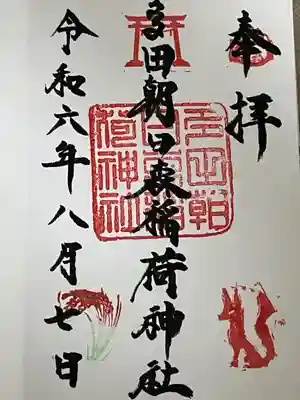 奉拝
多田朝日森稲荷神社
令和六年八月七日